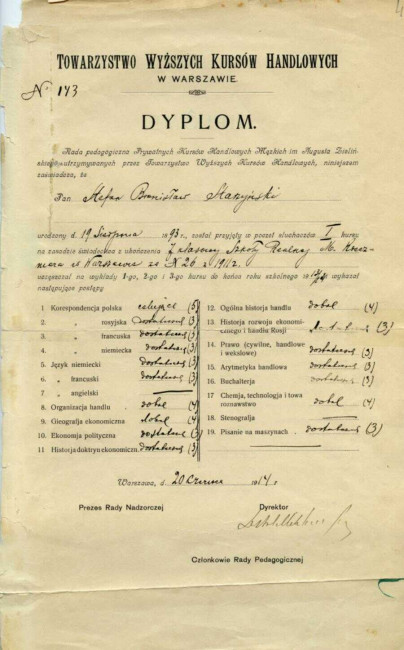 TOWARZYSTWO WYŻSZYCH KURSÓW HANDLOWYCH
W WARSZAWIE.
№ 143
DYPLOM.
Rada pedagogiczna Prywatnych Kursów Handlowych Męskich im. Augusta Zieliń-
skiego, utrzymywanych przez Towarzystwo Wyższych Kursów Handlowych, niniejszem
zaświadcza, że
Pan Stefan Bronisław Starzyński
urodzony d. 19 Sierpnia 1893 r. został przyjęty w poczet słuchaczów I kursu
na zasadzie świadectwa z ukończenia 7 klasowej Szkoły Realnej M.
w Warszawie za № 26 z 1912 r.
uczęszczał na wykłady 1-go, 2-go i 3-go kursu do końca roku szkolnego i wykazał
następujące postępy
1 Korespondencja polska celująco (5)
2 „ rosyjska dostateczne (3)
3 „ francuska dostateczne (3)
4 „ niemiecka dostateczne (3)
5 Język niemiecki dostateczne (3)
6 „ francuski dostateczne (3)
7 „ angielski
8 Organizacja handlu dobre (4)
9 Gieografja ekonomiczna dobre (4)
10 Ekonomja polityczna dostateczne (3)
11 Historja doktryn ekonomiczn. dostateczne (3)
12 Ogólna historja handlu dobre (4)
13 Historja rozwoju ekonomi-
cznego i handlu Rosji dostateczne (3)
14 Prawo (cywilne, handlowe
i wekslowe) dostateczne (3)
15 Arytmetyka handlowa dostateczne (3)
16 Buchalterja dostateczne (3)
17 Chemja, technologja i towa
roznawstwo dobre (4)
18 Stenografja
19 Pisanie na maszynach dostateczne (3)
Warszawa, d. 20 Czerwca 1914 r.
Prezes Rady Nadzorczej
Dyrektor
Członkowie Rady Pedagogicznej